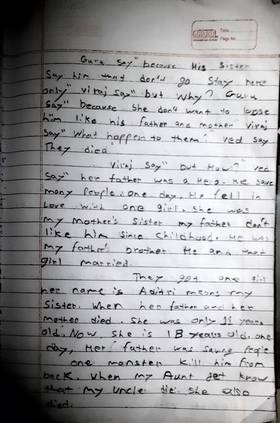 Date
Page No.
Guru Say" because His Sister
Say him that don't go Stay here
only" Viraj say" but Why? Guru
Say" because She don't want to loose
him like his father and mother Viraj
Say" What happen to them" ved say
They died
Viraj Say" But How?" ved
Say" her father was a Hero. He save
many people. one day. He fell in
Love with one girl. She was
my mother's Sister my father don't
like him since childhood. He was
my father's brother. He and that
girl married.
They got one girl
her name is Aditri means my
Sister. When her father and her
mother died. She was only 11 years
old. Now, she is 18 years old. one
day, Her father was Saving people
one monster kill him from
back. When my Aunt get know
that my uncle die she also
died.